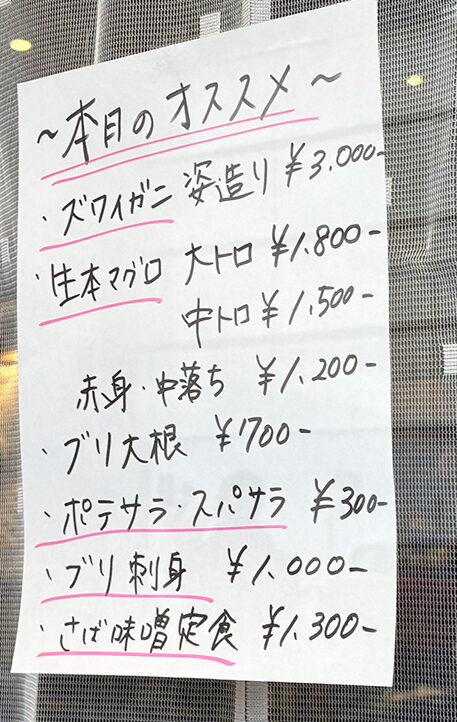 ～本日のオススメ～
・ズワイガニ 姿造り ¥3,000-
・生本マグロ 大トロ ¥1,800-
中トロ ¥1,500-
赤身・中落ち ¥1,200-
・ブリ大根 ¥700-
・ポテサラ・スパサラ ¥300-
・ブリ刺身 ¥1,000-
・さば味噌定食 ¥1,300-